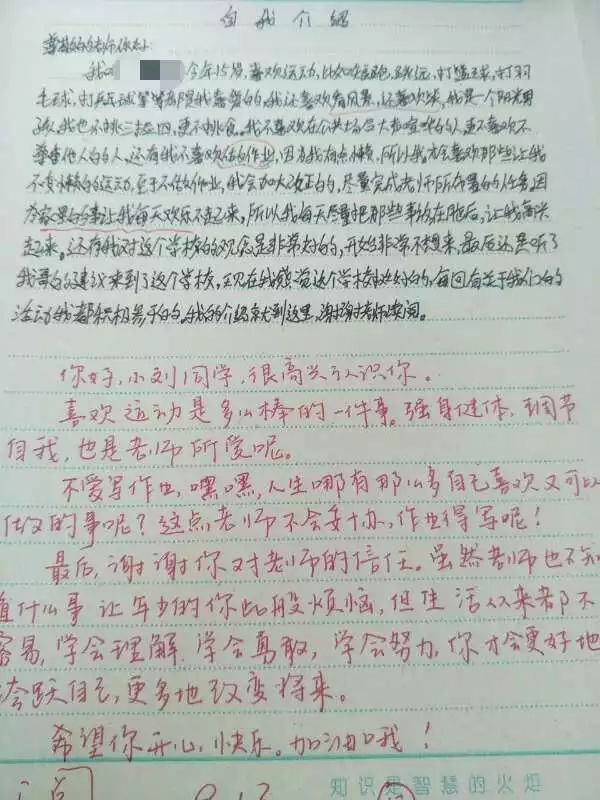 自我介绍
尊敬的老师你好：
我叫 今年15岁，喜欢运动，比如吃跑，跳远，打篮球，打羽
毛球，打乒乓球等等都是我喜爱的，我还喜欢看风景，还喜欢笑，我是个阳光男
孩，我也不挑三拣四，更不挑食。我不喜欢在公共场合大声喧哗的人，更不喜欢不
尊重他人的人，还有我不喜欢做的作业，因为我有点懒，所以我才会喜欢那些让我
不变懒的运动，至于不做作业，我会加大改正的，尽量完成老师所布置的任务，因
为家里的事让我每天欢乐不起来，所以我每天尽量把那些事放在脑后，让我高兴
起来。还有我对这个学校的观念是非常好的，开始非常不想来，最后还是听了
我哥的建议来到了这个学校，现在我感觉这个学校挺好的，每回有关于我们的
活动我都积极参于的。我的介绍就到这里，谢谢老师读阅。
你好，小刘同学，很高兴认识你。
喜欢运动是多么棒的一件事。强身健体，调节
自我，也是老师所爱呢。
不爱写作业，嘿嘿，人生哪有那么多自己喜欢又可以
做的事呢？这点老师不会妥协，作业得写呢！
最后，谢谢你对老师的信任。虽然老师也不知
道什么事让年少的你此般烦恼，但生活从来都不
容易，学会理解，学会勇敢，学会努力，你才会更好地
跨跃自己，更多地改变将来。
希望你开心，快乐。加油哦！
知识是智慧的火炬